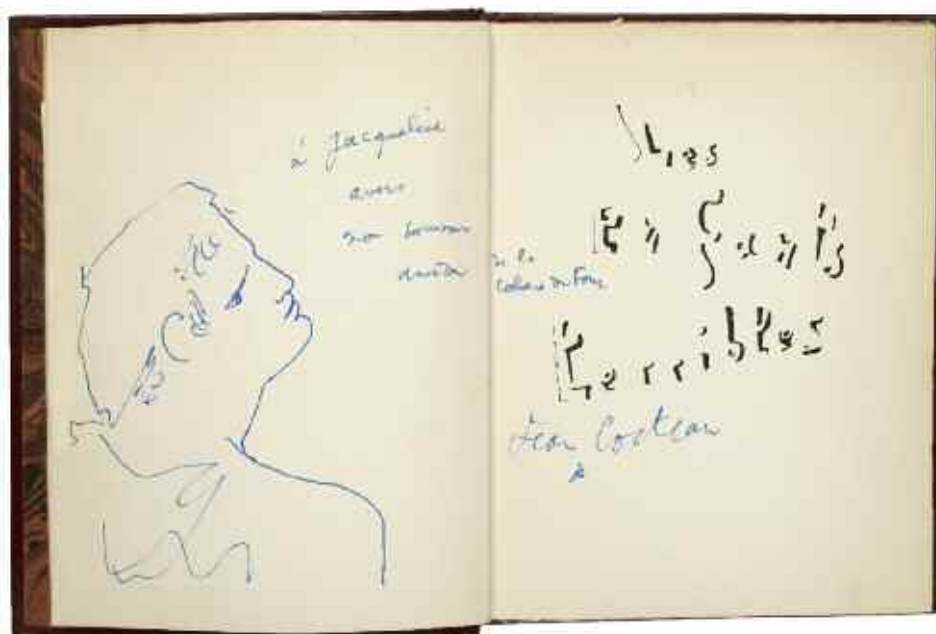 à Jacqueline
avec
mon souvenir
Les
Enfants
Terribles
Jean Cocteau